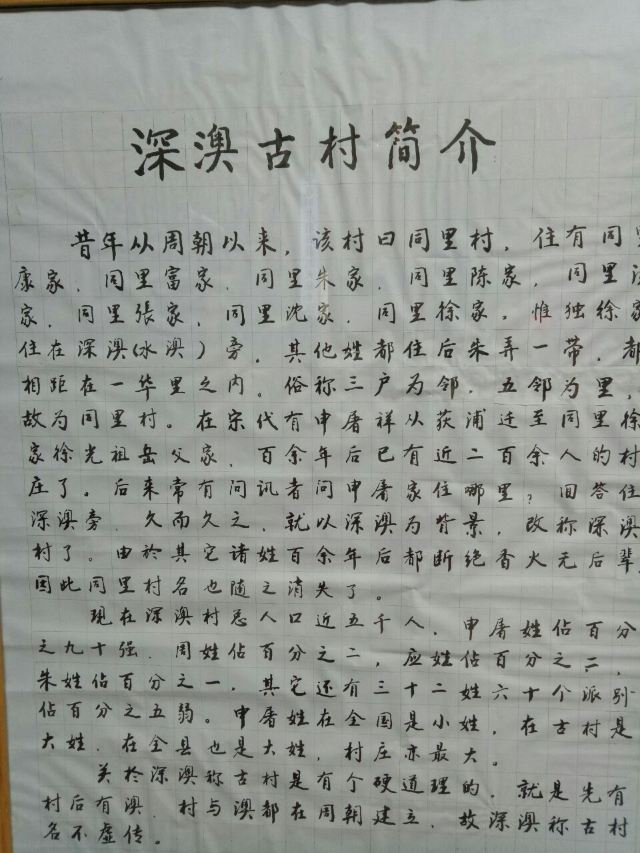 深澳古村简介
昔年从周朝以来，该村曰同里村，住有同里
康家．同里富家．同里朱家．同里陈家．同里
家．同里張家．同里沈家．同里徐家。惟独徐家
住在深澳(水澳)旁．其他姓都住后朱弄一带．都
相距在一华里之内。俗称三户为邻．五邻为里，
故为同里村。在宋代有申屠祥从荻浦迁至同里徐
家徐光祖岳父家．百余年后已有近二百余人的村
庄了。后来常有问讯者问申屠家住哪里？回答住
深澳旁．久而久之．就以深澳为背景，改称深澳
村了。由於其它诸姓百余年后都断绝香火无后辈，
因此同里村名也随之消失了。
现在深澳村总人口近五千人．申屠姓佔百分
之九十强．周姓佔百分之二，应姓佔百分之二，
朱姓佔百分之一，其它还有三十二姓六十个派别
佔百分之五弱。申屠姓在全国是小姓．在古村是
大姓．在全县也是大姓，村庄亦最大。
关於深澳称古村是有个硬道理的．就是先有
村后有澳．村与澳都在周朝建立．故深澳称古村
名不虚传。